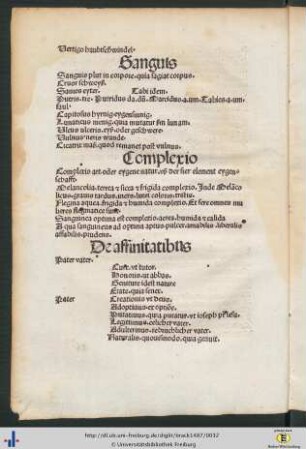 Vertigo haubtschwindel.
Sanguis
Sanguis plur in corpore. quia sugiat corpus.
Cruor schweyß.
Sanies eyter. Tabi idem.
Putris. tre. Putridus da. dū. Marcidus. a. um. Tabies. a. um.
faul.
Capitosus hyrnig. eygensinnig.
Lunaticus nienig. quia mutatur fm lunam.
Ulcus ulceris. eyß. oder geschwere.
Vulnus neris wunde.
Cicatrix maß. quod remanet post vulnus.
Complexio
Complexio art. oder eygene natur. eß der fier element eygen-
schafft.
Melancolia. terrea & sicca & frigida complexio. Inde Melāco
licus. grauis tardus. auers. luteus. tristis.
Flegma aquea. frigida & humida complexio. Et fere omnes mu
lieres flegmatice sunt.
Sanguinea optima est complexio. aerea. humida & calida
A qua sanguineus ad optima aptus. pulcer. amabilis
affabilis. prudens.
De affinitatibus
Pater vater.
Cure. vt tutor.
Honoris. ut abbas.
Generature idest nature
Etate. quia senex.
Pater Creationis vt deus.
Adoptiuus. ex optiōe.
Putatiuus. quia putatur. vt ioseph
Legitimus. eelicher vater.
Adulterinus. eebruchlicher vater.
Naturalis. quousmodo. quia genuit.
http://dl.ub.uni-freiburg.de/diglit/brack1487/0032
© Universitätsbibliothek Freiburg